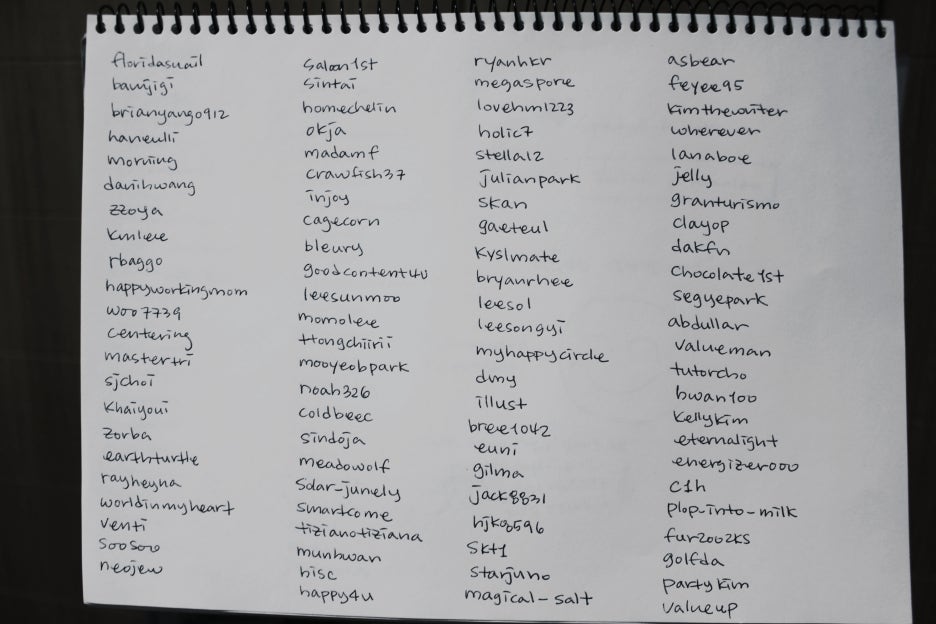 floridasnail
banjjgi
brianyang0912
haneulli
morning
danihwang
zzoya
kmlee
rbaggo
happyworkingmom
woo7739
centering
mastertri
sjchoi
khaiyoui
zorba
earthturtle
rayheyna
worldinmyheart
venti
soosoo
neojew
salon1st
sintai
homechelin
okja
madamf
crawfish37
injoy
cagecorn
bleury
goodcontent4u
leesunmoo
momolee
ttongchiirii
mooyeobpark
noah326
coldbeec
sindoja
meadowolf
solar-junely
smartcome
tizianotiziana
munhwan
hisc
happy4u
ryanhkr
megaspore
lovehm1223
holic7
stella12
julianpark
skan
gaeteul
kyslmate
bryanrhee
leesol
leesongyi
myhappycircle
dmy
illust
bree1042
euni
gilma
jack8831
hjk0596
skt1
starjuno
magical-salt
asbear
feyee95
kimthewriter
wherever
lanaboe
jelly
granturismo
clayop
dakfn
chocolate1st
segyepark
abdullar
valueman
tutorcho
hwan100
kellykim
eternalight
energizer000
c1h
plop-into-milk
fur2002ks
golfda
partykim
valueup